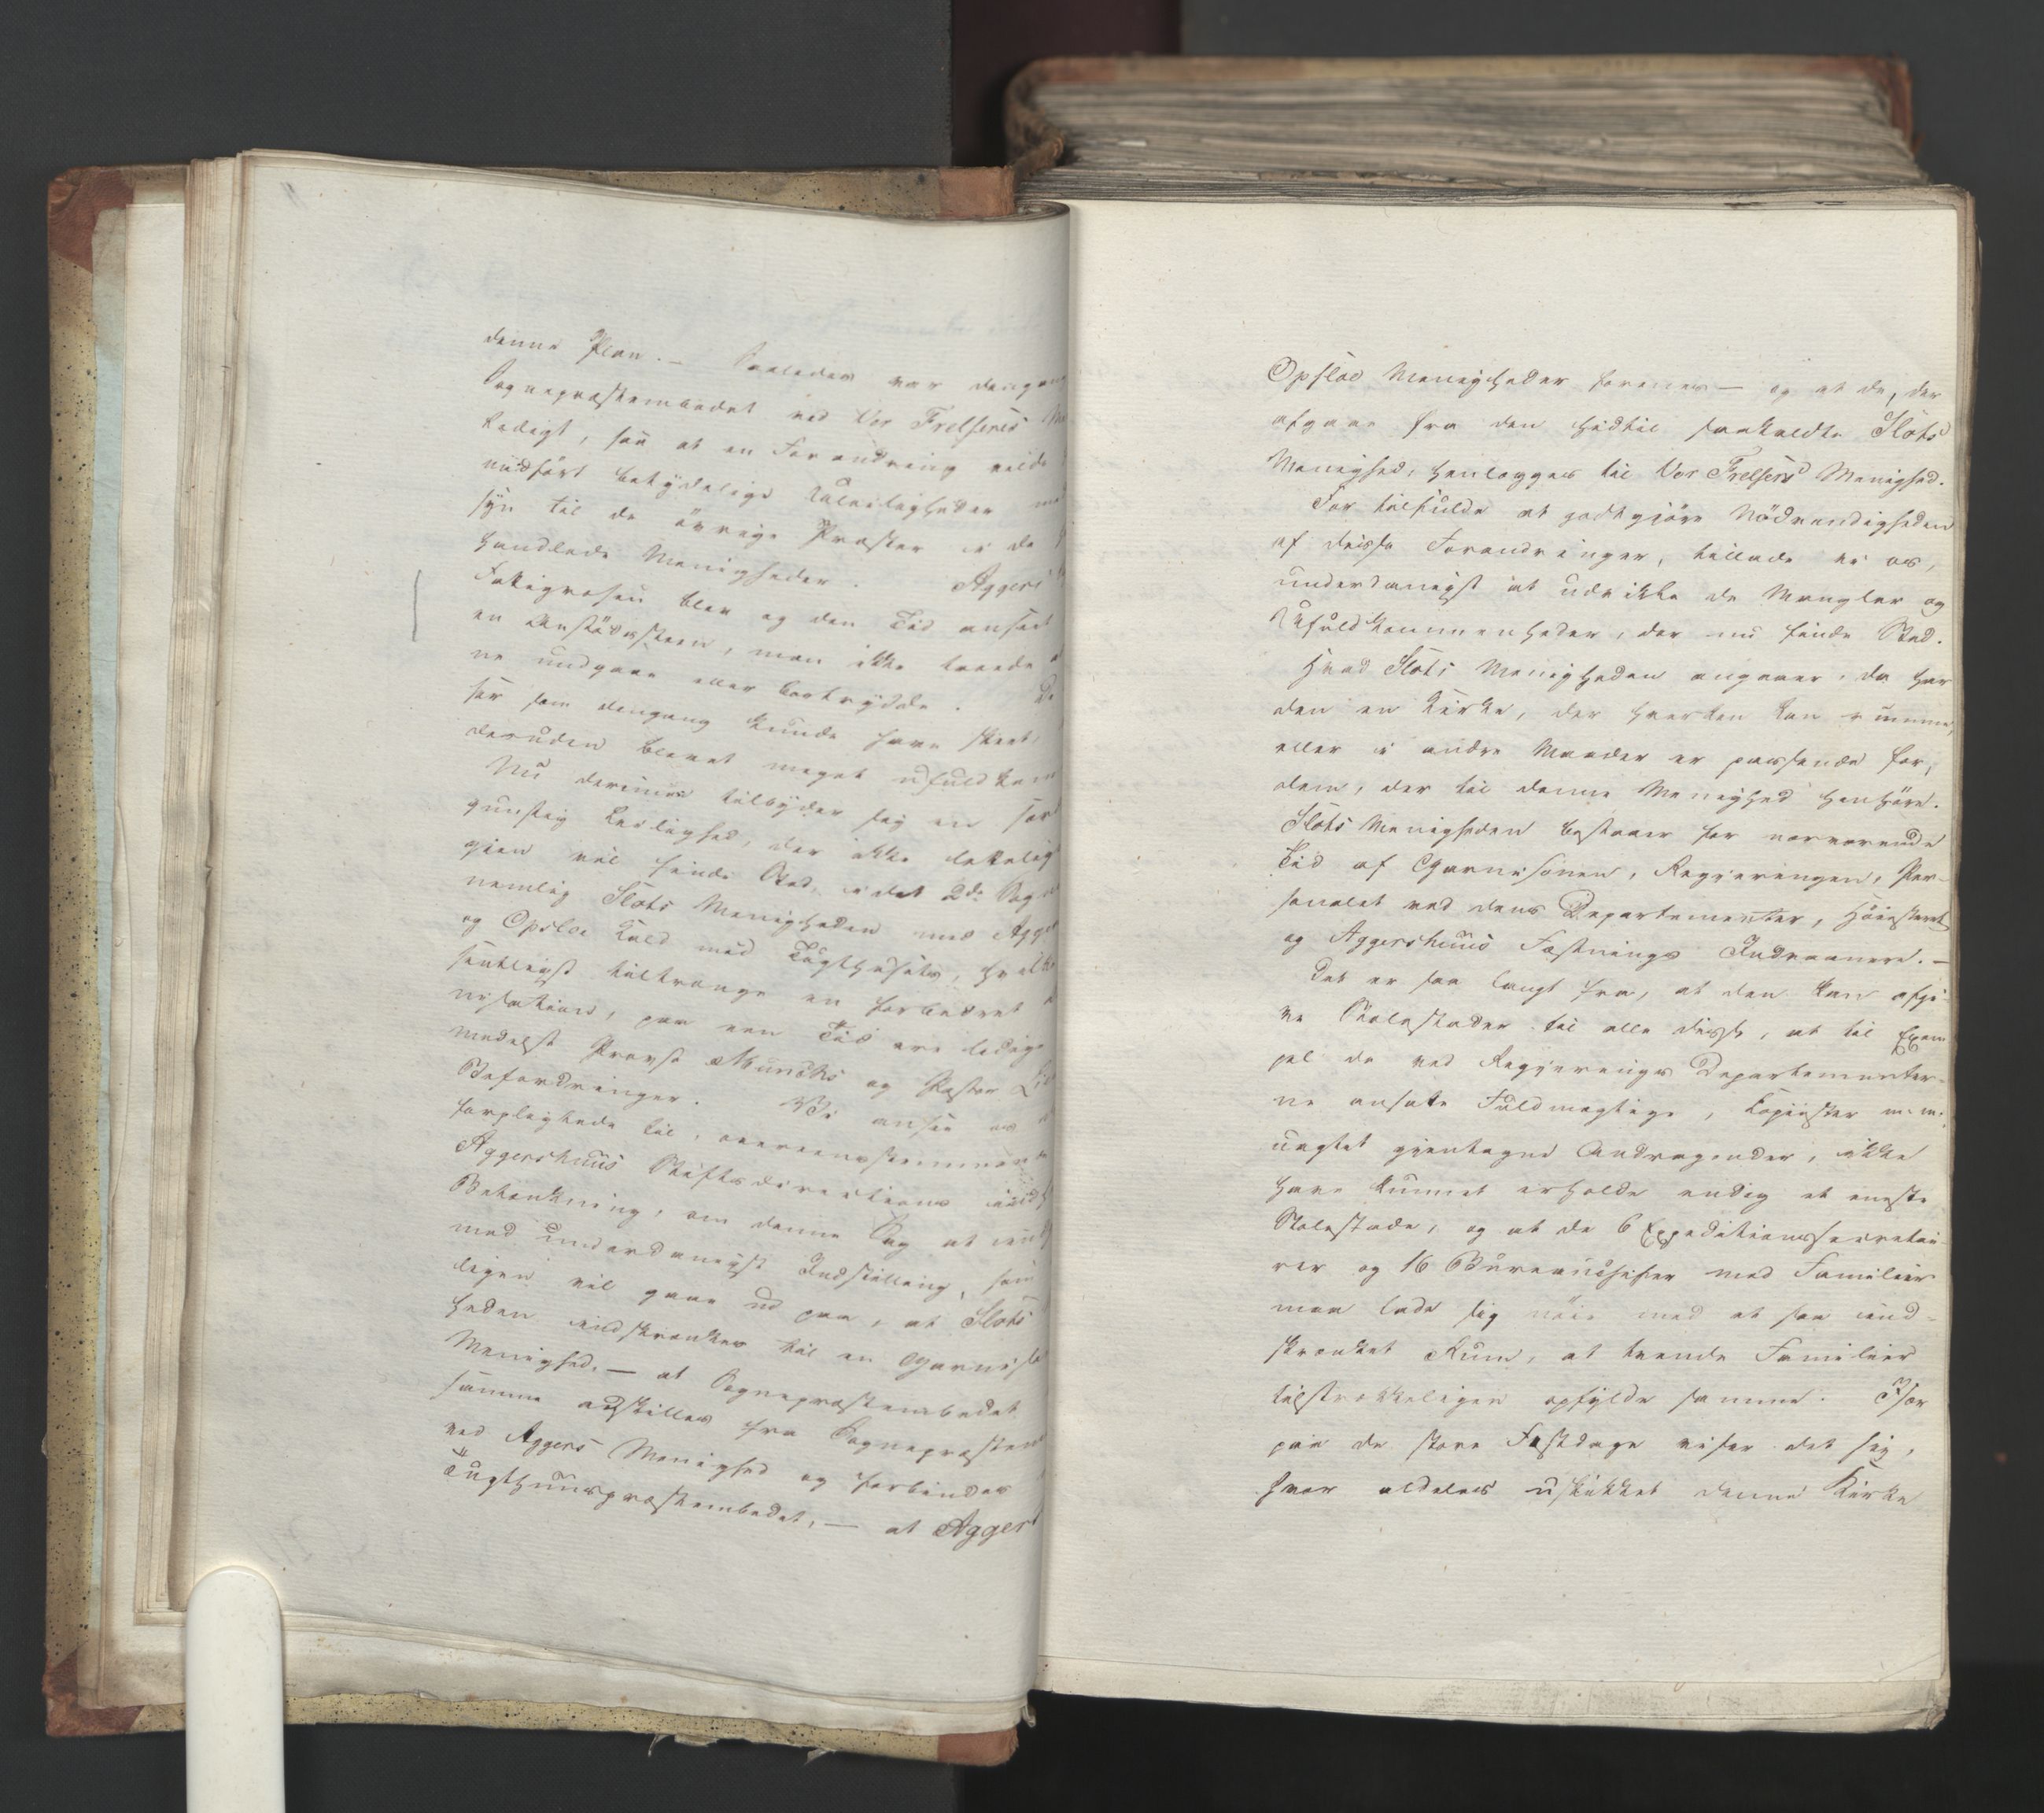 denne Plan. — Saaledes var dengang
Sognepræstembedet ved Vor Frelseres
ledigt, saa at en Forandring vilde
medført betydelige Uleiligheder
syn til de øvrige Præster i de
handlede Menigheder. Aggers
Fattigvæsen blev og den Tid anseet
en Anstødssteen, man ikke troede
ne undgaae eller bortrydde. De
ser som dengang kunde have skeet,
desuden blevet meget ufuldkom
Nu derimod tilbyder sig en sær
gunstig Leilighed, der ikke letteligen
gien vil finde Sted, i det 2de Sogne
nemlig Slots Menigheden med Agger
og Opsloe Kald med Tugthuset, hvilke
sentligst tiltrænge en forbedret
nisation, paa een Tid ere ledige
medelst Provst Munchs og Pastor
Befordringer. Vi ansee os
forpligtede til, overeensstemmende
Aggershuus Stiftsdirections
Betænkning, om denne Sag at
med underdanigst Indstilling, som
ligen vil gaae ud paa, at Slots
heden indskrænkes til en Garniso
Menighed, — at Sognepræstembedet
samme adskilles fra Sognepræstem
ved Aggers Menighed og forbindes
Tugthuuspræstembedet, — at Aggers
Opsloe Menigheder forenes — og at de, der
afgaae fra den hidtil saakaldte Slots
Menighed, henlægges til Vor Frelsers Menighed.
For tilfulde at godtgjøre Nødvendigheden
af disse Forandringer, tillade vi os,
underdanigst at udvikle de Mangler og
Ufuldkommenheder, der nu finde Sted.
Hvad Slots Menigheden angaaer, da har
den en Kirke, der hverken kan rumme,
eller i andre Maader er passende for,
dem, der til denne Menighed henhøre.
Slots Menigheden bestaaer for nærværende
Tid af Garnisonen, Regjeringen, Per-
sonalet ved dens Departementer, Høiesteret
og Aggershuus Fæstnings Indvaanere. —
Det er saa langt fra, at den kan afgi-
ve Stolestader til alle disse, at til Exem
pel de ved Regjerings Departementer-
ne ansatte Fuldmægtige, Copiister m: m:
uagtet gjentagne Andragender, ikke
have kunnet erholde endog et eneste
Stolestade, og at de 6 Expeditionssecretai-
rer og 16 Bureauchefer med Familier
maa lade sig nøie med et saa ind-
skrænket Rum, at tvende Familier
tilstrækkeligen opfylde samme. Især
paa de store Festdage viser det sig,
hvor aldeles uskikket denne Kirke